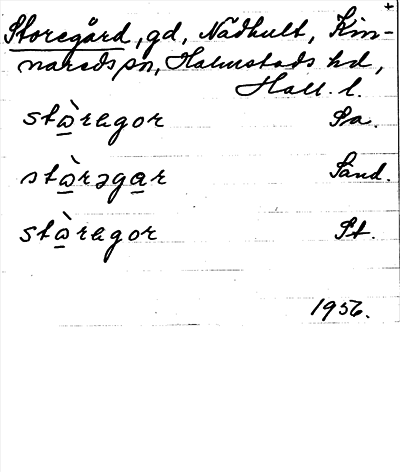 Storegård, gd, Nådhult, Kin-
nareds sn, Halmstads hd,
Hall. l.
stòragor Sa.
stòrəgar Sand.
stòragor St.
1956.